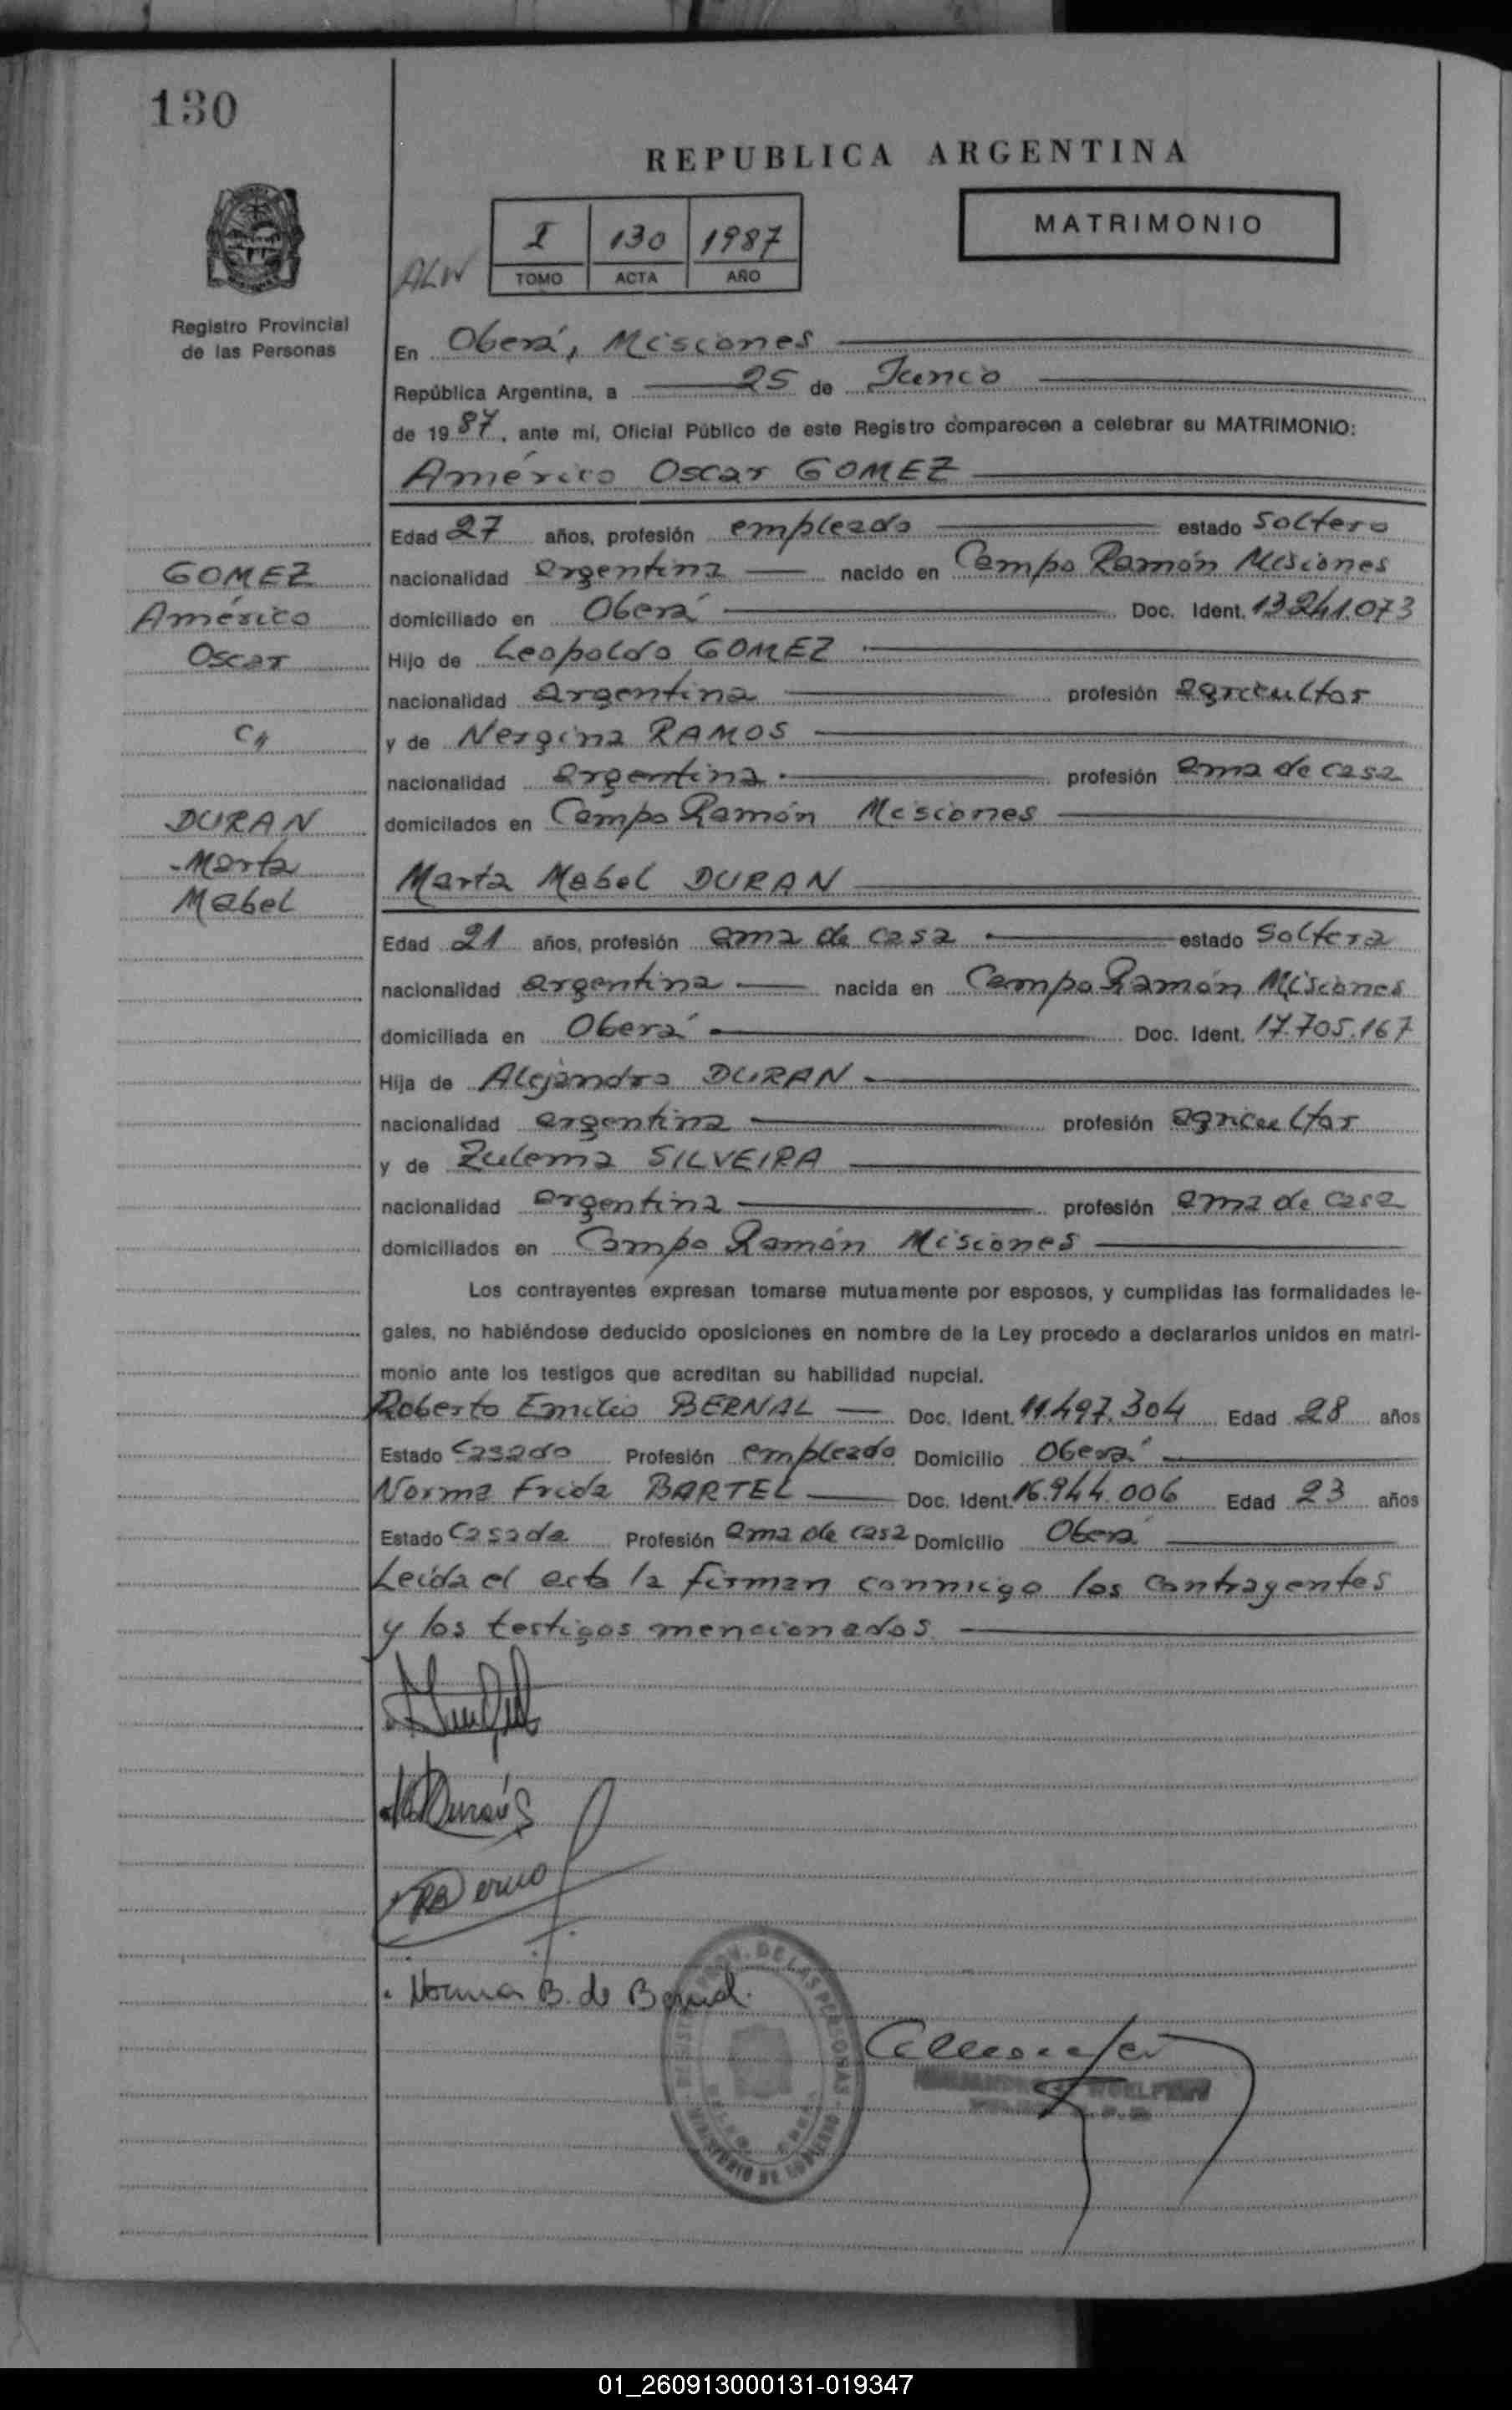 130
REPUBLICA ARGENTINA
MATRIMONIO
I 130 1987
TOMO ACTA AÑO
ALW
Registro Provincial
de las Personas
En Oberá, Misiones
República Argentina, a 25 de Junio
de 1987, ante mí, Oficial Público de este Registro comparecen a celebrar su MATRIMONIO:
Américo Oscar GOMEZ
Edad 27 años, profesión empleado estado soltero
GOMEZ
nacionalidad argentina nacido en Campo Ramón Misiones
Américo
domiciliado en Oberá Doc. Ident. 13.241.073
Oscar
Hijo de Leopoldo GOMEZ
nacionalidad argentina profesión agricultor
c/
y de Nergina RAMOS
nacionalidad argentina profesión ama de casa
DURAN
domicilados en Campo Ramón Misiones
Marta
Mabel
Marta Mabel DURAN
Edad 21 años, profesión ama de casa estado soltera
nacionalidad argentina nacida en Campo Ramón Misiones
domiciliada en Oberá Doc. Ident. 17.705.167
Hija de Alejandro DURAN
nacionalidad argentina profesión agricultor
y de Zulema SILVEIRA
nacionalidad argentina profesión ama de casa
domiciliados en Campo Ramón Misiones
Los contrayentes expresan tomarse mutuamente por esposos, y cumplidas las formalidades le-
gales, no habiéndose deducido oposiciones en nombre de la Ley procedo a declararlos unidos en matri-
monio ante los testigos que acreditan su habilidad nupcial.
Roberto Emilio BERNAL Doc. Ident. 11.497.304 Edad 28 años
Estado casado Profesión empleado Domicilio Oberá
Norma Frida BARTEL Doc. Ident. 16.944.006 Edad 23 años
Estado casada Profesión ama de casa Domicilio Oberá
Leída el acta la firman conmigo los contrayentes
y los testigos mencionados.
Norma B. de Bernal.
DE LAS PERSONAS
01_260913000131-019347